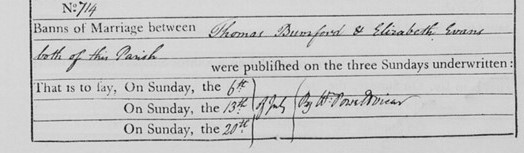 No 714
Banns of Marriage between Thomas Bumford & Elizabeth Evans
both of this Parish
were publiſhed on the three Sundays underwritten :
That is to ſay, On Sunday, the 6th
On Sunday, the 13th of July By Wm Powell Vicar
On Sunday, the 20th